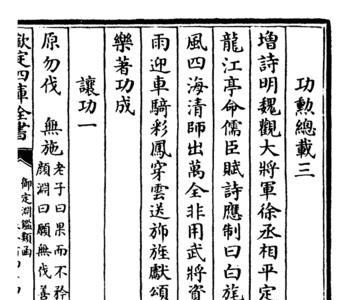 功勲總載三
增詩明魏觀大將軍徐丞相平定
龍江亭命儒臣賦詩應制曰白旄
風四海清師出萬全非用武將資
雨迎車騎彩鳳穿雲送旆旌獻頌
樂著功成
讓功一
原勿伐 無施 老子曰果而不矜
顔淵曰願無伐善
欽定四庫全書
御定淵鑑類函